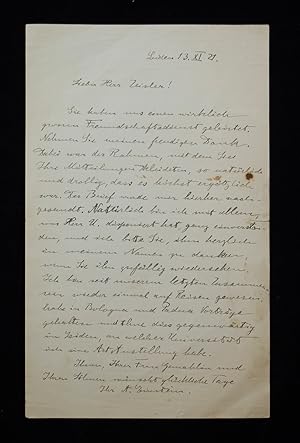 Leiden 13. XI 21.
Lieber Herr Zeisler!
Sie haben uns einen wirklich
grossen Freundschaftsdienst geleistet.
Nehmen Sie meinen freudigen Dank.
Dabei war der Rahmen, mit dem Sie
Ihre Mitteilungen kleideten, so natürlich
und drollig, dass es höchst ergötzlich
war. Der Brief wurde mir hierher nach-
gesandt. Natürlich bin ich mit allem,
was Herr U. disponiert hat ganz einverstan-
den, und ich bitte Sie, ihm herzlich
in meinem Namen zu danken,
wenn Sie ihn gefällig wiedersehen.
Ich bin seit unserem letzten Zusammen-
sein wieder einmal auf Reisen gewesen,
habe in Bologna und Padua Vorträge
gehalten und thue dies gegenwärtig
in Leiden, an welcher Universität
ich eine Art Anstellung habe.
Ihnen, Ihrer Frau Gemahlin und
Ihren Söhnen wünscht glückliche Tage
Ihr A. Einstein.